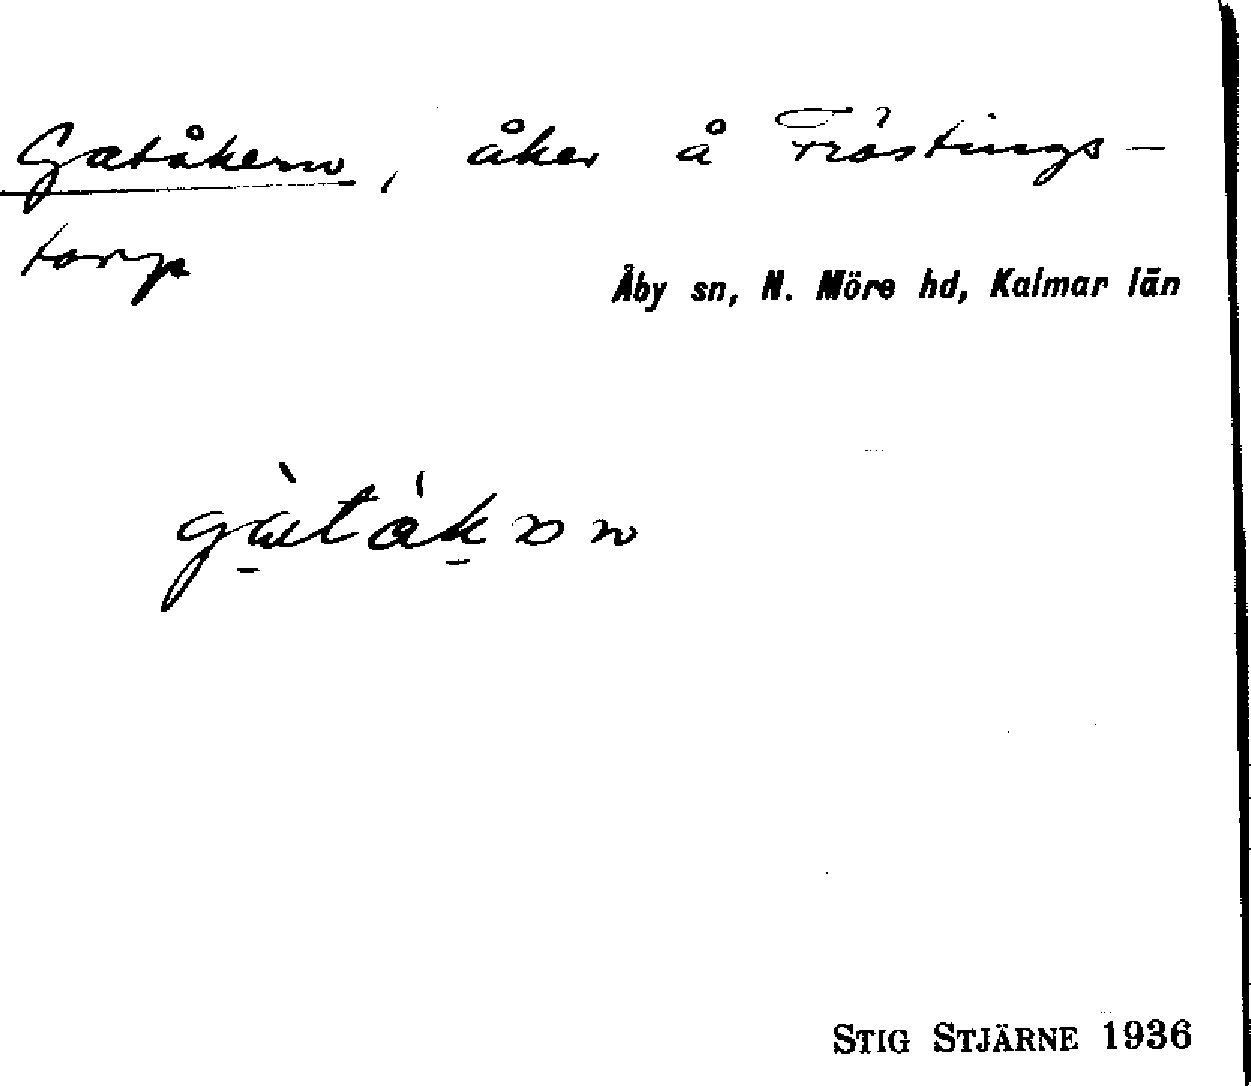 Gatåkern, åker å Tröstings-
torp
Åby sn, N. Möre hd, Kalmar län
STIG STJÄRNE 1936